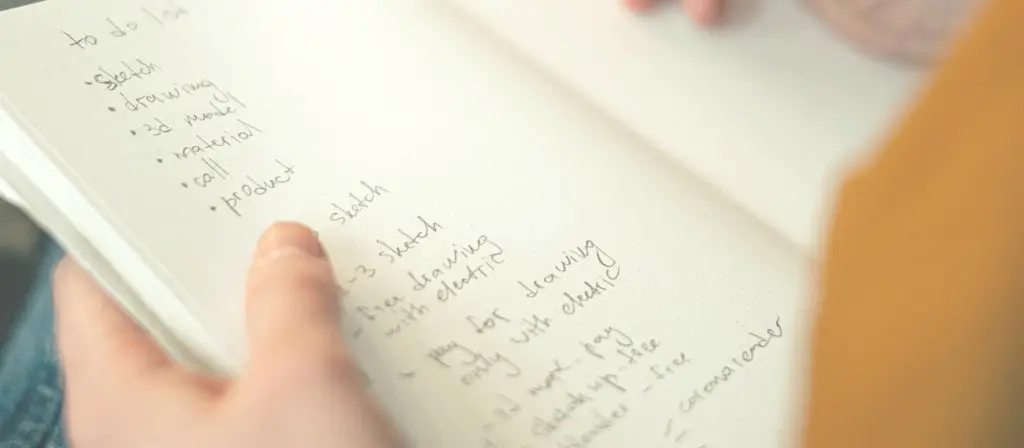 to do list
• sketch
• drawing
• 3d model
• material
• call
• product
sketch
-3 sketch
- free drawing
with electric
- pay for drawing
only with electric
pay
sketch up - free
- free
- coronarender